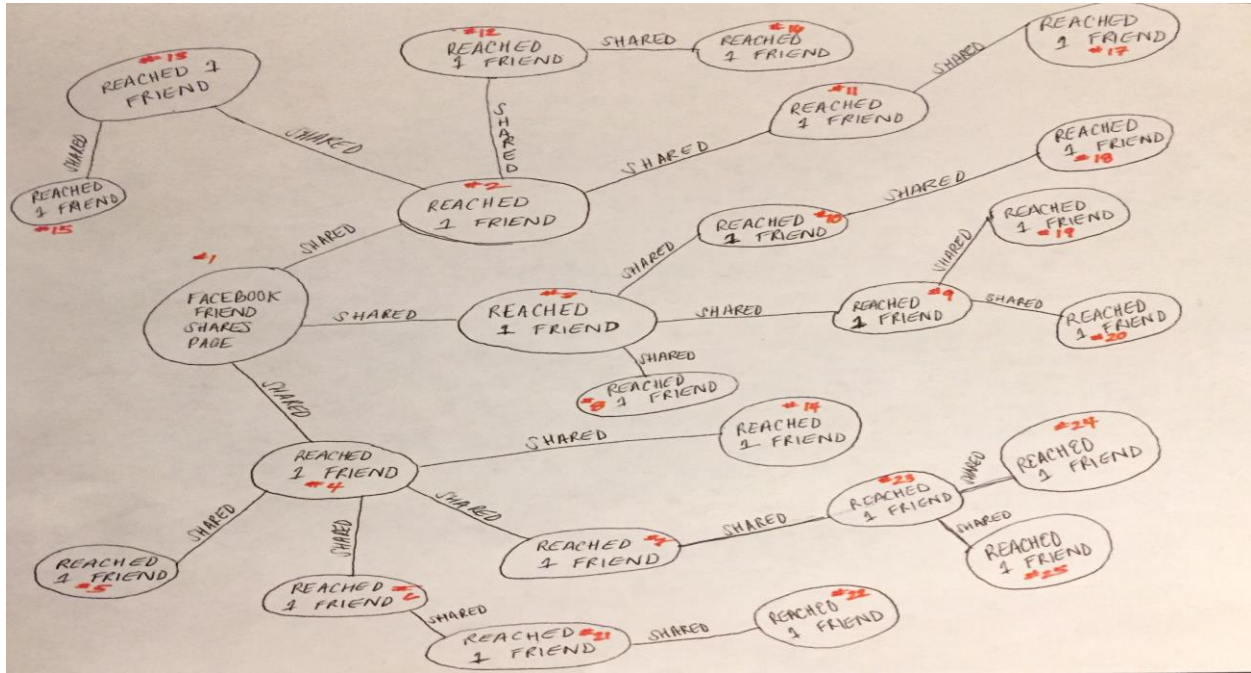 #13
REACHED 1
FRIEND
SHARED
REACHED
1 FRIEND
#15
SHARED
#12
REACHED
1 FRIEND
SHARED
#16
REACHED
1 FRIEND
SHARED
#2
REACHED
1 FRIEND
SHARED
#11
REACHED
1 FRIEND
SHARED
REACHED
1 FRIEND
#17
SHARED
#1
FACEBOOK
FRIEND
SHARES
PAGE
SHARED
REACHED
1 FRIEND
SHARED
REACHED #10
1 FRIEND
SHARED
REACHED
1 FRIEND
#18
SHARED
REACHED #9
1 FRIEND
SHARED
REACHED
1 FRIEND
#19
SHARED
REACHED
1 FRIEND
#20
SHARED
REACHED
#8 1 FRIEND
SHARED
REACHED
1 FRIEND
#4
SHARED
#14
REACHED
1 FRIEND
SHARED
REACHED
1 FRIEND
#5
SHARED
REACHED
1 FRIEND
SHARED
REACHED #21
1 FRIEND
SHARED
REACHED #22
1 FRIEND
SHARED
REACHED
1 FRIEND
SHARED
#23
REACHED
1 FRIEND
SHARED
#24
REACHED
1 FRIEND
SHARED
REACHED
1 FRIEND
#25